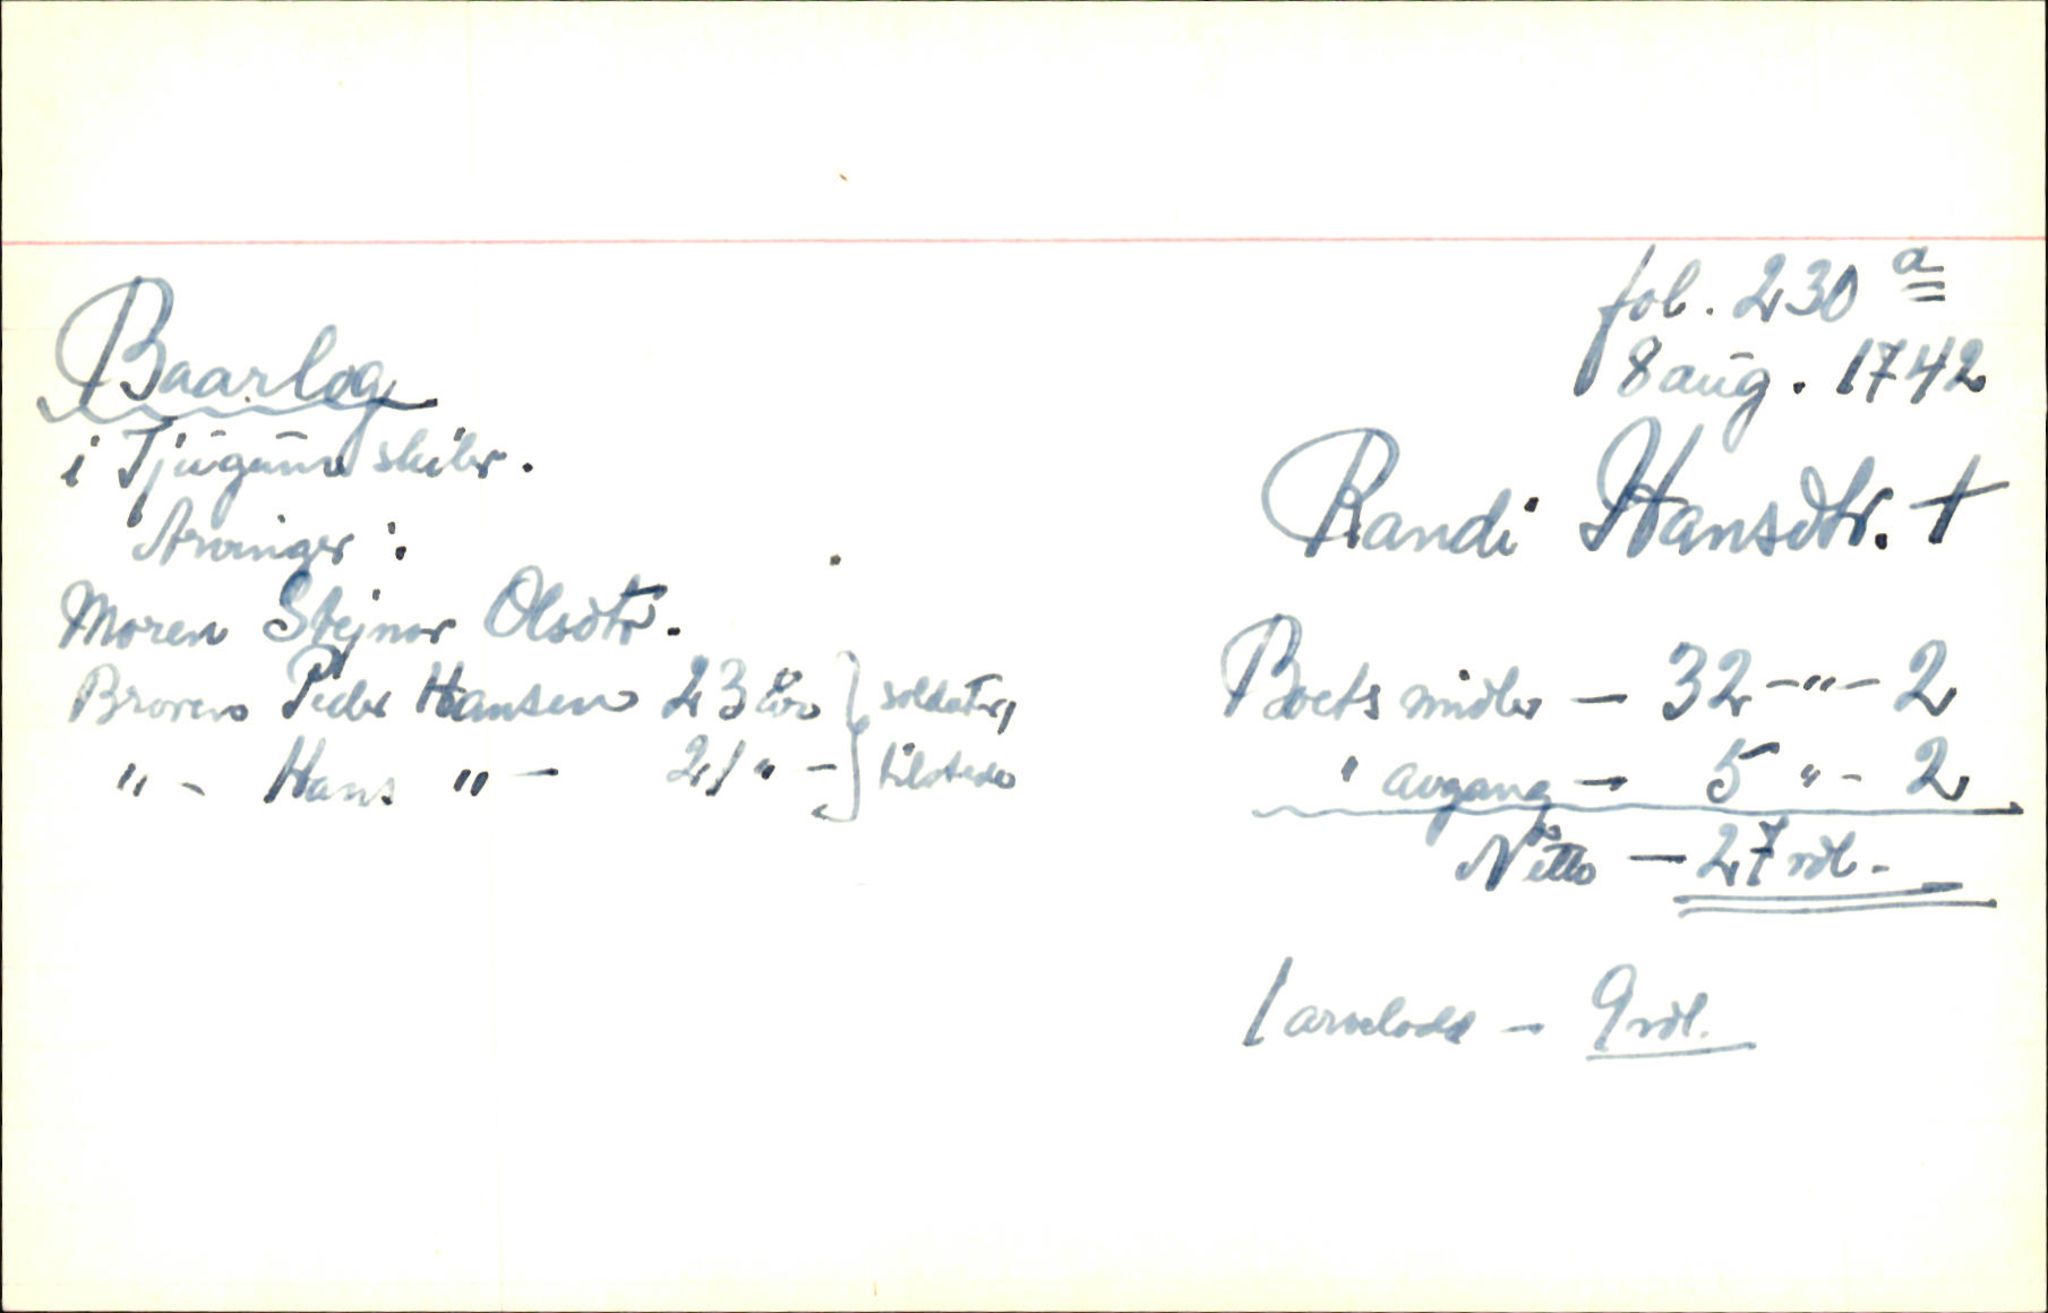 fol. 230 a
8 aug. 1742
Baarlog
i Tjugum skibr.
Randi Hansdtr. †
Arvinger:
Moren Stejnor Olsdtr.
Broren Peder Hansen 23 år } soldater,
" - Hans " - 21 " - } tilstede
Boets midler - 32 - " - 2
" avgang - 5 " - 2
Netto - 27 rdl.
1 arvelodd - 9 rdl.